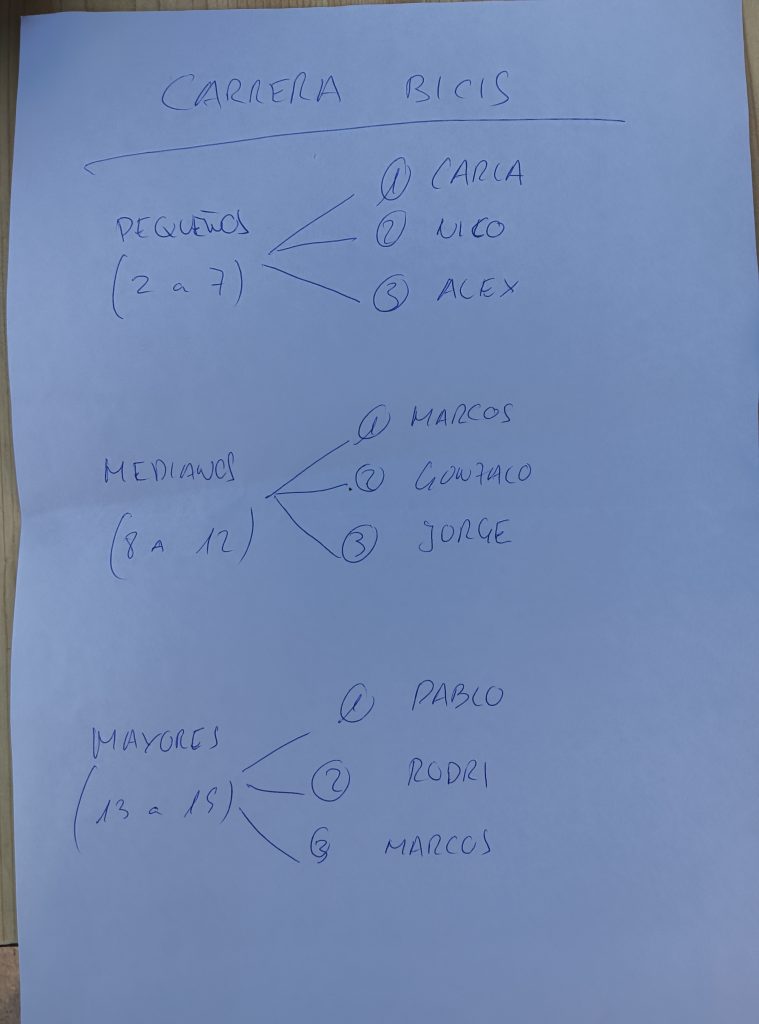 CARRERA BICIS
PEQUEÑOS
(2 a 7)
1 CARLA
2 NICO
3 ALEX
MEDIANOS
(8 A 12)
1 MARCOS
2 GONZALO
3 JORGE
MAYORES
(13 a 15)
1 PABLO
2 RODRI
3 MARCOS